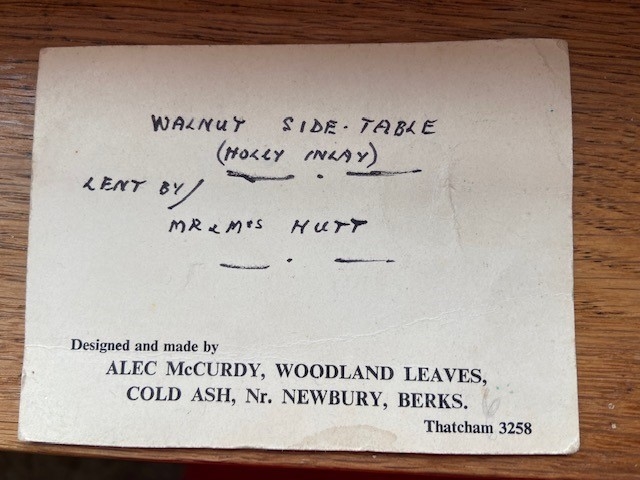 WALNUT SIDE-TABLE
(HOLLY INLAY)
LENT BY/
MR & MRS HUTT
Designed and made by
ALEC McCURDY, WOODLAND LEAVES,
COLD ASH, Nr. NEWBURY, BERKS.
Thatcham 3258